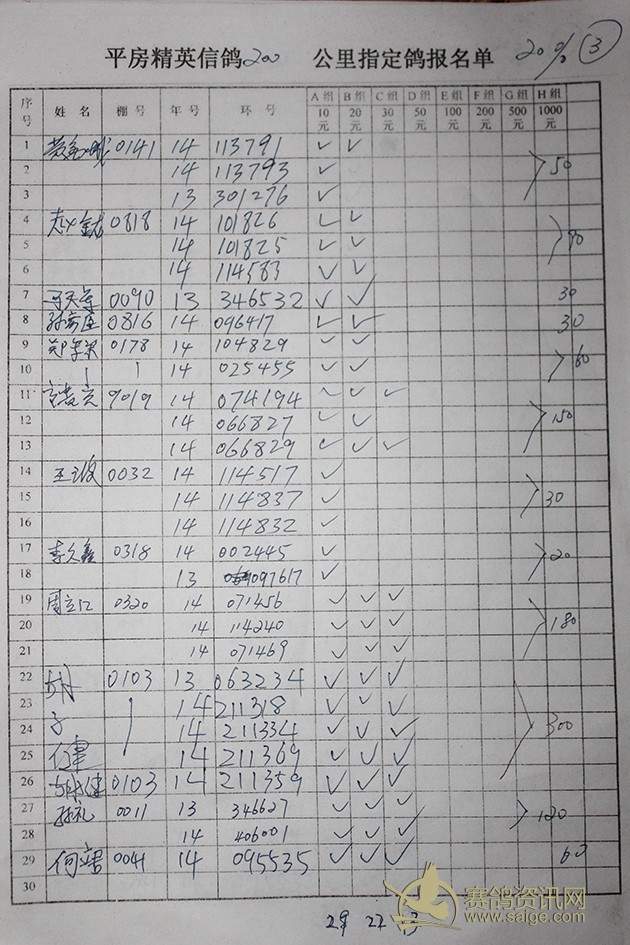 平房精英信鸽200 公里指定鸽报名单 20% ③
序号 姓名 棚号 年号 环号 A组 10元 B组 20元 C组 30元 D组 50元 E组 100元 F组 200元 G组 500元 H组 1000元
1 0141 14 113791 ✓ ✓
2 14 113793 ✓ 50
3 13 301276 ✓
4 0818 14 101826 ✓ ✓
5 14 101825 ✓ ✓ 90
6 14 114583 ✓ ✓
7 0090 13 346532 ✓ ✓ 30
8 0816 14 096417 ✓ ✓ 30
9 0178 14 104829 ✓ ✓
10 14 025455 ✓ ✓ 60
11 9019 14 074194 ✓ ✓ ✓
12 14 066827 ✓ ✓ 150
13 14 066829 ✓ ✓ ✓
14 0032 14 114517 ✓
15 14 114837 ✓ 30
16 14 114832 ✓
17 李久鑫 0318 14 002445 ✓
18 13 097617 ✓ 20
19 0320 14 071456 ✓ ✓ ✓
20 14 114240 ✓ ✓ ✓ 180
21 14 071469 ✓ ✓ ✓
22 0103 13 063234 ✓ ✓ ✓
23 14 211318 ✓ ✓ ✓
24 14 211334 ✓ ✓ ✓ 300
25 14 211369 ✓ ✓ ✓
26 0103 14 211359 ✓ ✓ ✓
27 孙礼 0011 13 346627 ✓ ✓ ✓ 120
28 14 406001 ✓ ✓ ✓
29 0041 14 095535 ✓ ✓ ✓ 60
30
29 22 13
赛鸽资讯网
www.saige.com